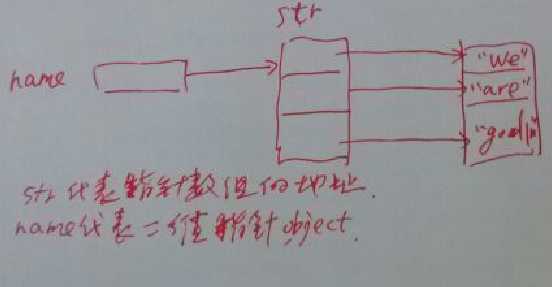 str
name
"We"
"are"
"good\n"
str 代表指针数组的地址.
name代表二维指针object.